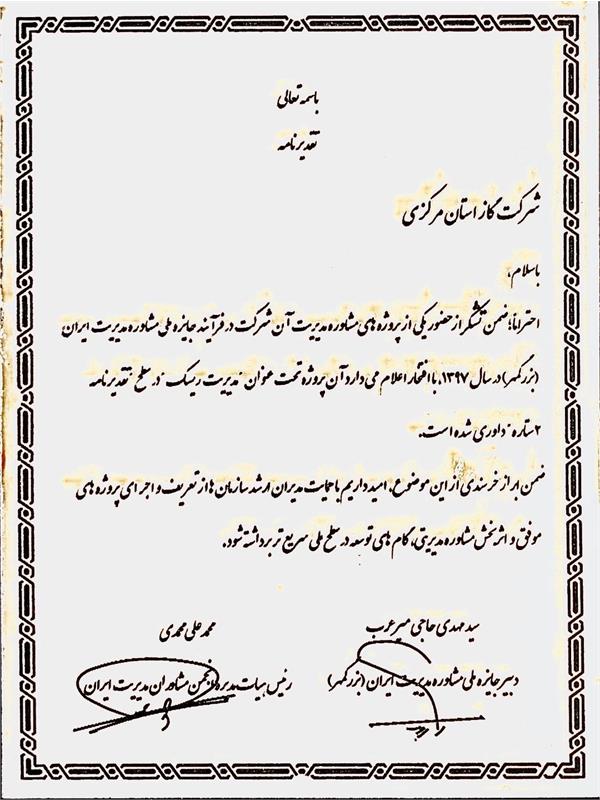 باسمه تعالی
تقدیرنامه
شرکت گاز استان مرکزی
باسلام،
احتراماً؛ ضمن تشکر از حضور یکی از پروژه های مشاوره مدیریت آن شرکت در فرآیند جایزه ملی مشاوره مدیریت ایران
(بزرگمهر) در سال ۱۳۹۷، با افتخار اعلام می دارد آن پروژه تحت عنوان "مدیریت ریسک" در سطح "تقدیرنامه
۲ ستاره" داوری شده است.
ضمن ابراز خرسندی از این موضوع، امید داریم با حمایت مدیران ارشد سازمان ها از تعریف و اجرای پروژه های
موفق و اثربخش مشاوره مدیریتی، گام های توسعه در سطح ملی سریع تر برداشته شود.
سید مهدی حاجی میرعرب
محمد علی محمدی
دبیر جایزه ملی مشاوره مدیریت ایران (بزرگمهر)
رئیس هیات مدیره انجمن مشاوران مدیریت ایران